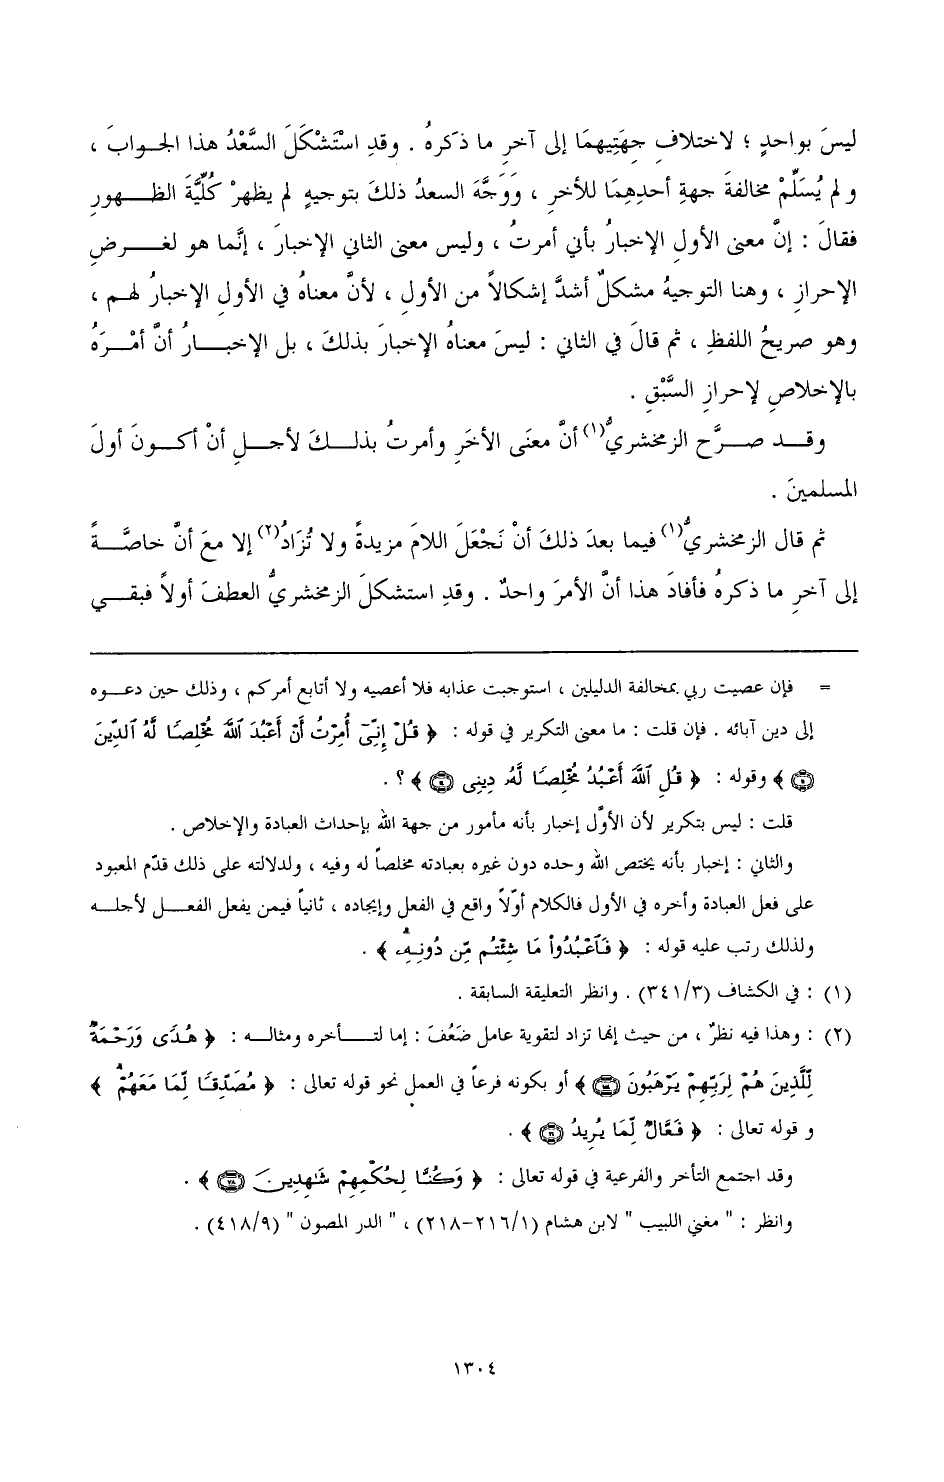 ليسَ بواحدٍ ؛ لاختلافِ جهَتِيهمَا إلى آخرِ ما ذكرهُ . وقدِ اسْتَشْكَلَ السَّعْدُ هذا الجـوابَ ،
و لم يُسَلِّمْ مخالفةَ جهةِ أحدِهِمَا للأخرِ ، وَوَجَّهَ السعدُ ذلكَ بتوجيهٍ لم يظهرْ كُلِّيَّةَ الظـهورِ
فقالَ : إنَّ معنى الأولِ الإخبارُ بأني أمرتُ ، وليس معنى الثاني الإخبارَ ، إنَّما هو لغـرضِ
الإحرازِ ، وهنا التوجيهُ مشكلٌ أشدَّ إشكالاً من الأولِ ، لأنَّ معناهُ في الأولِ الإخبارُ لهـم ،
وهو صريحُ اللفظِ ، ثم قالَ في الثاني : ليسَ معناهُ الإخبارَ بذلكَ ، بل الإخبـارُ أنَّ أمْـرَهُ
بالإخلاصِ لإحرازِ السَّبْقِ .
وقـد صـرَّح الزمخشريُّ(١) أنَّ معنَى الأخَرِ وأمرتُ بذلـكَ لأجـلِ أنْ أكـونَ أولَ
المسلمينَ .
ثم قال الزمخشريُّ(١) فيما بعدَ ذلكَ أنْ نَجْعَلَ اللامَ مزيدةً ولا تُزَادُ(٢) إلا معَ أنَّ خاصَّـةً
إلى آخرِ ما ذكرهُ فأفادَ هذا أنَّ الأمرَ واحدٌ . وقدِ استشكلَ الزمخشريُّ العطفَ أولاً فبقـي
= فإن عصيت ربي بمخالفة الدليلين ، استوجبت عذابه فلا أعصيه ولا أتابع أمركم ، وذلك حين دعـوه
إلى دين آبائه . فإن قلت : ما معنى التكرير في قوله : ﴿ قُلْ إِنِّىٓ أُمِرْتُ أَنْ أَعْبُدَ ٱللَّهَ مُخْلِصًا لَّهُ ٱلدِّينَ
﴾ وقوله : ﴿ قُلِ ٱللَّهَ أَعْبُدُ مُخْلِصًا لَّهُۥ دِينِى ﴾ ؟ .
قلت : ليس بتكرير لأن الأوَّل إخبار بأنه مأمور من جهة الله بإحداث العبادة والإخلاص .
والثاني : إخبار بأنه يختص الله وحده دون غيره بعبادته مخلصاً له وفيه ، ولدلالته على ذلك قدّم المعبود
على فعل العبادة وأخره في الأول فالكلام أوّلاً واقع في الفعل وإيجاده ، ثانياً فيمن يفعل الفعـل لأجلـه
ولذلك رتب عليه قوله : ﴿ فَٱعْبُدُوا۟ مَا شِئْتُم مِّن دُونِهِۦ ﴾ .
(١) : في الكشاف (٣٤١/٣) . وانظر التعليقة السابقة .
(٢) : وهذا فيه نظرٌ ، من حيث إنها تزاد لتقوية عامل ضَعُفَ : إما لتـأخره ومثالـه : ﴿ هُدًى وَرَحْمَةٌ
لِّلَّذِينَ هُمْ لِرَبِّهِمْ يَرْهَبُونَ ﴾ أو بكونه فرعاً في العمل نحو قوله تعالى : ﴿ مُصَدِّقًا لِّمَا مَعَهُمْ ﴾
و قوله تعالى : ﴿ فَعَّالٌ لِّمَا يُرِيدُ ﴾ .
وقد اجتمع التأخر والفرعية في قوله تعالى : ﴿ وَكُنَّا لِحُكْمِهِمْ شَٰهِدِينَ ﴾ .
وانظر : " مغني اللبيب " لابن هشام (٢١٦/١-٢١٨) ، " الدر المصون " (٤١٨/٩) .
١٣٠٤